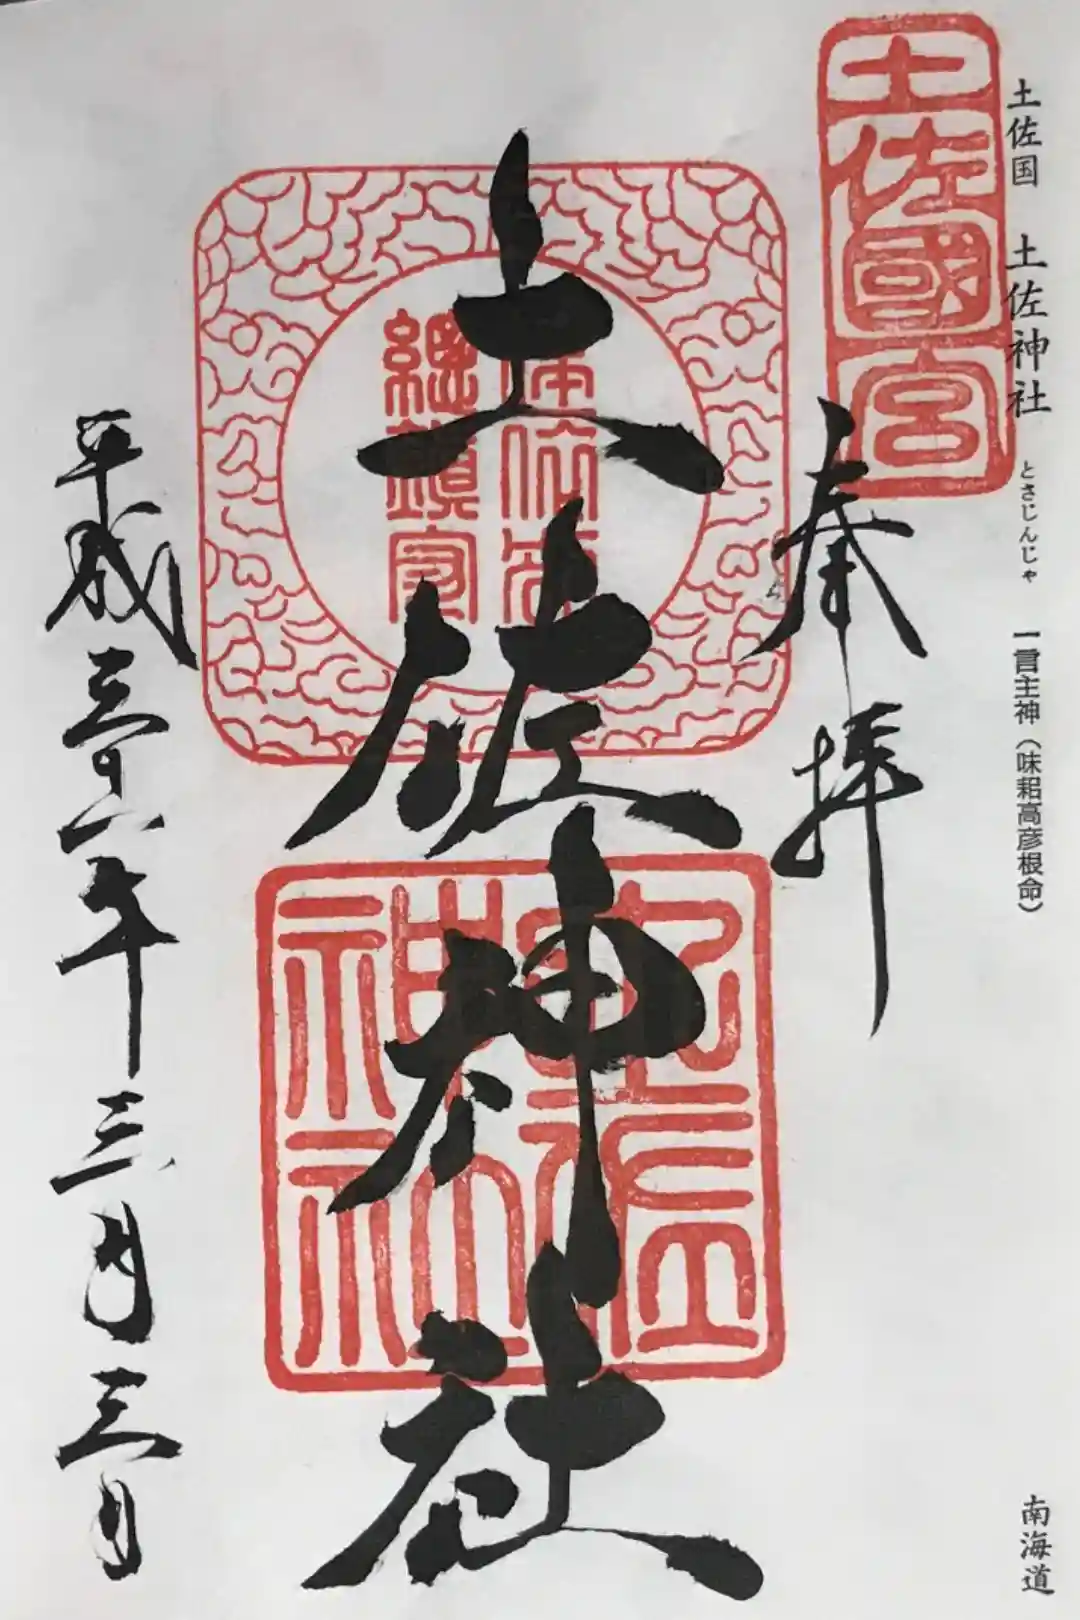 土佐国 土佐神社 とさじんじゃ 一言主神（味耜高彦根命）
南海道
土佐國宮
奉拝
土佐神社
土佐神社
平成三十一年三月三日